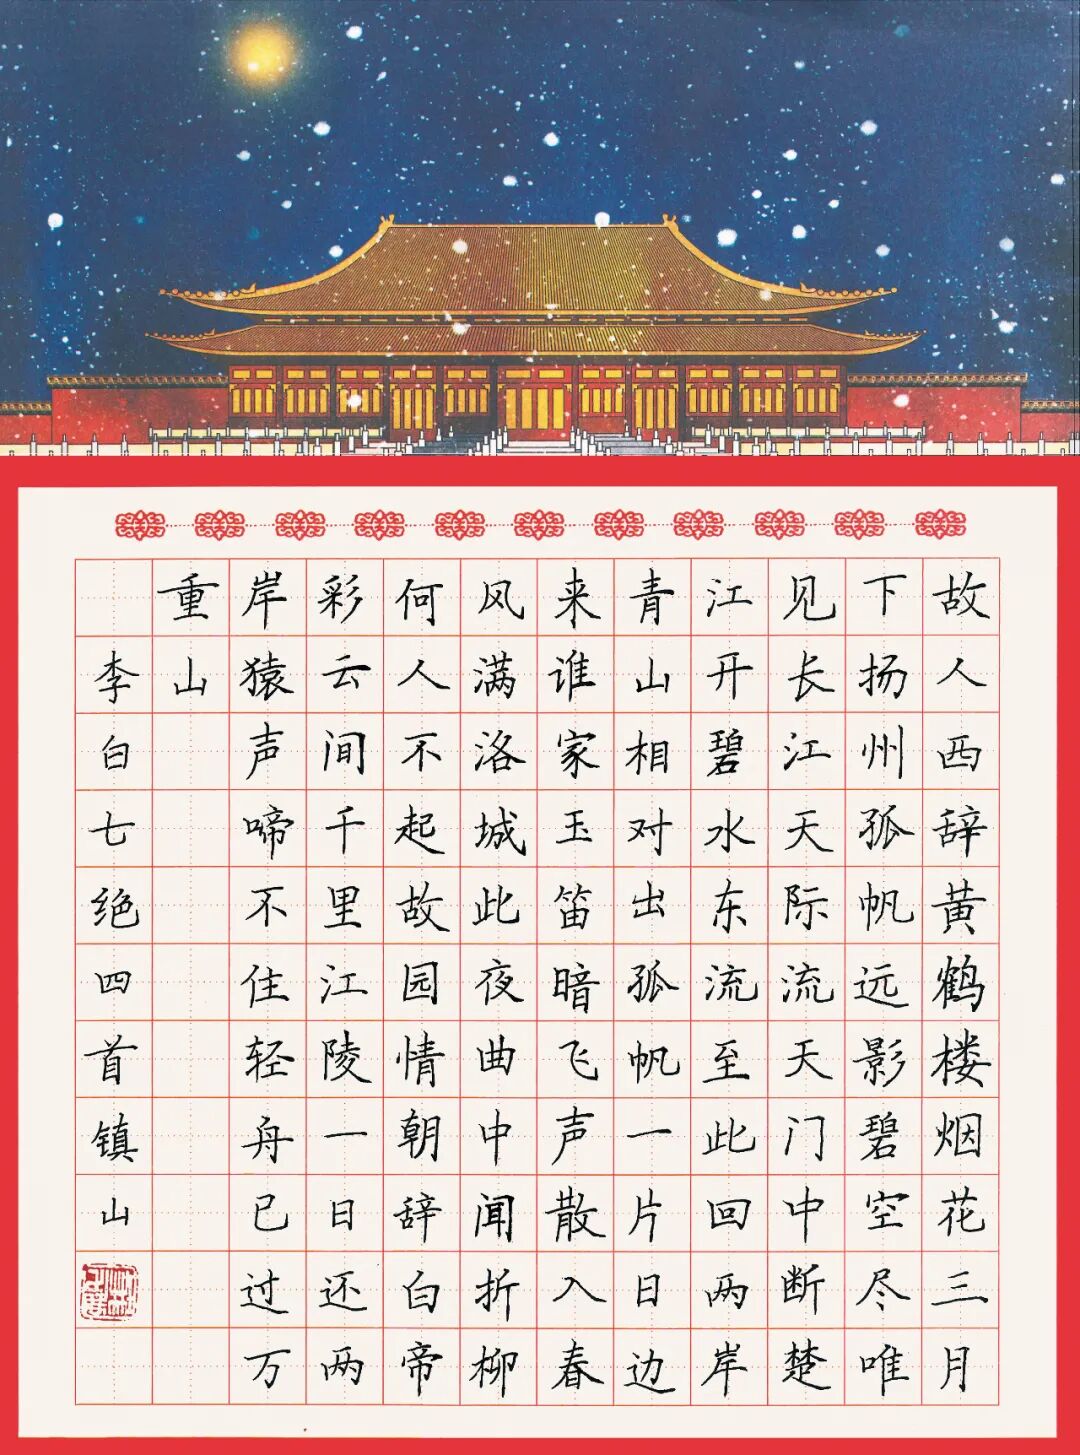 故人西辞黄鹤楼烟花三月
下扬州孤帆远影碧空尽唯
见长江天际流天门中断楚
江开碧水东流至此回两岸
青山相对出孤帆一片日边
来谁家玉笛暗飞声散入春
风满洛城此夜曲中闻折柳
何人不起故园情朝辞白帝
彩云间千里江陵一日还两
岸猿声啼不住轻舟已过万
重山
李白七绝四首镇山